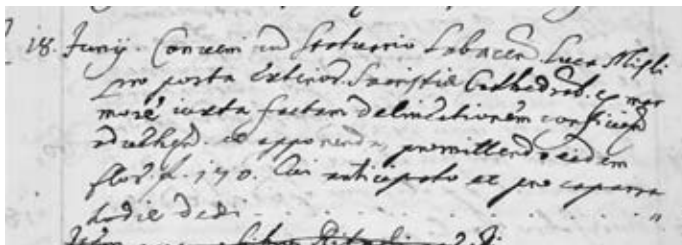 18. Junij. Conveni cum Statuario Labacen. Luca Misli
pro porta exterior. Sacristiæ Cathedral. ex mar
more iuxta factam delineationem conficiend
et apponenda, promittendo eidem
flor. 170. Cui anticipato et pro caparra
hodie dedi . . . . . . . . . . "
Item